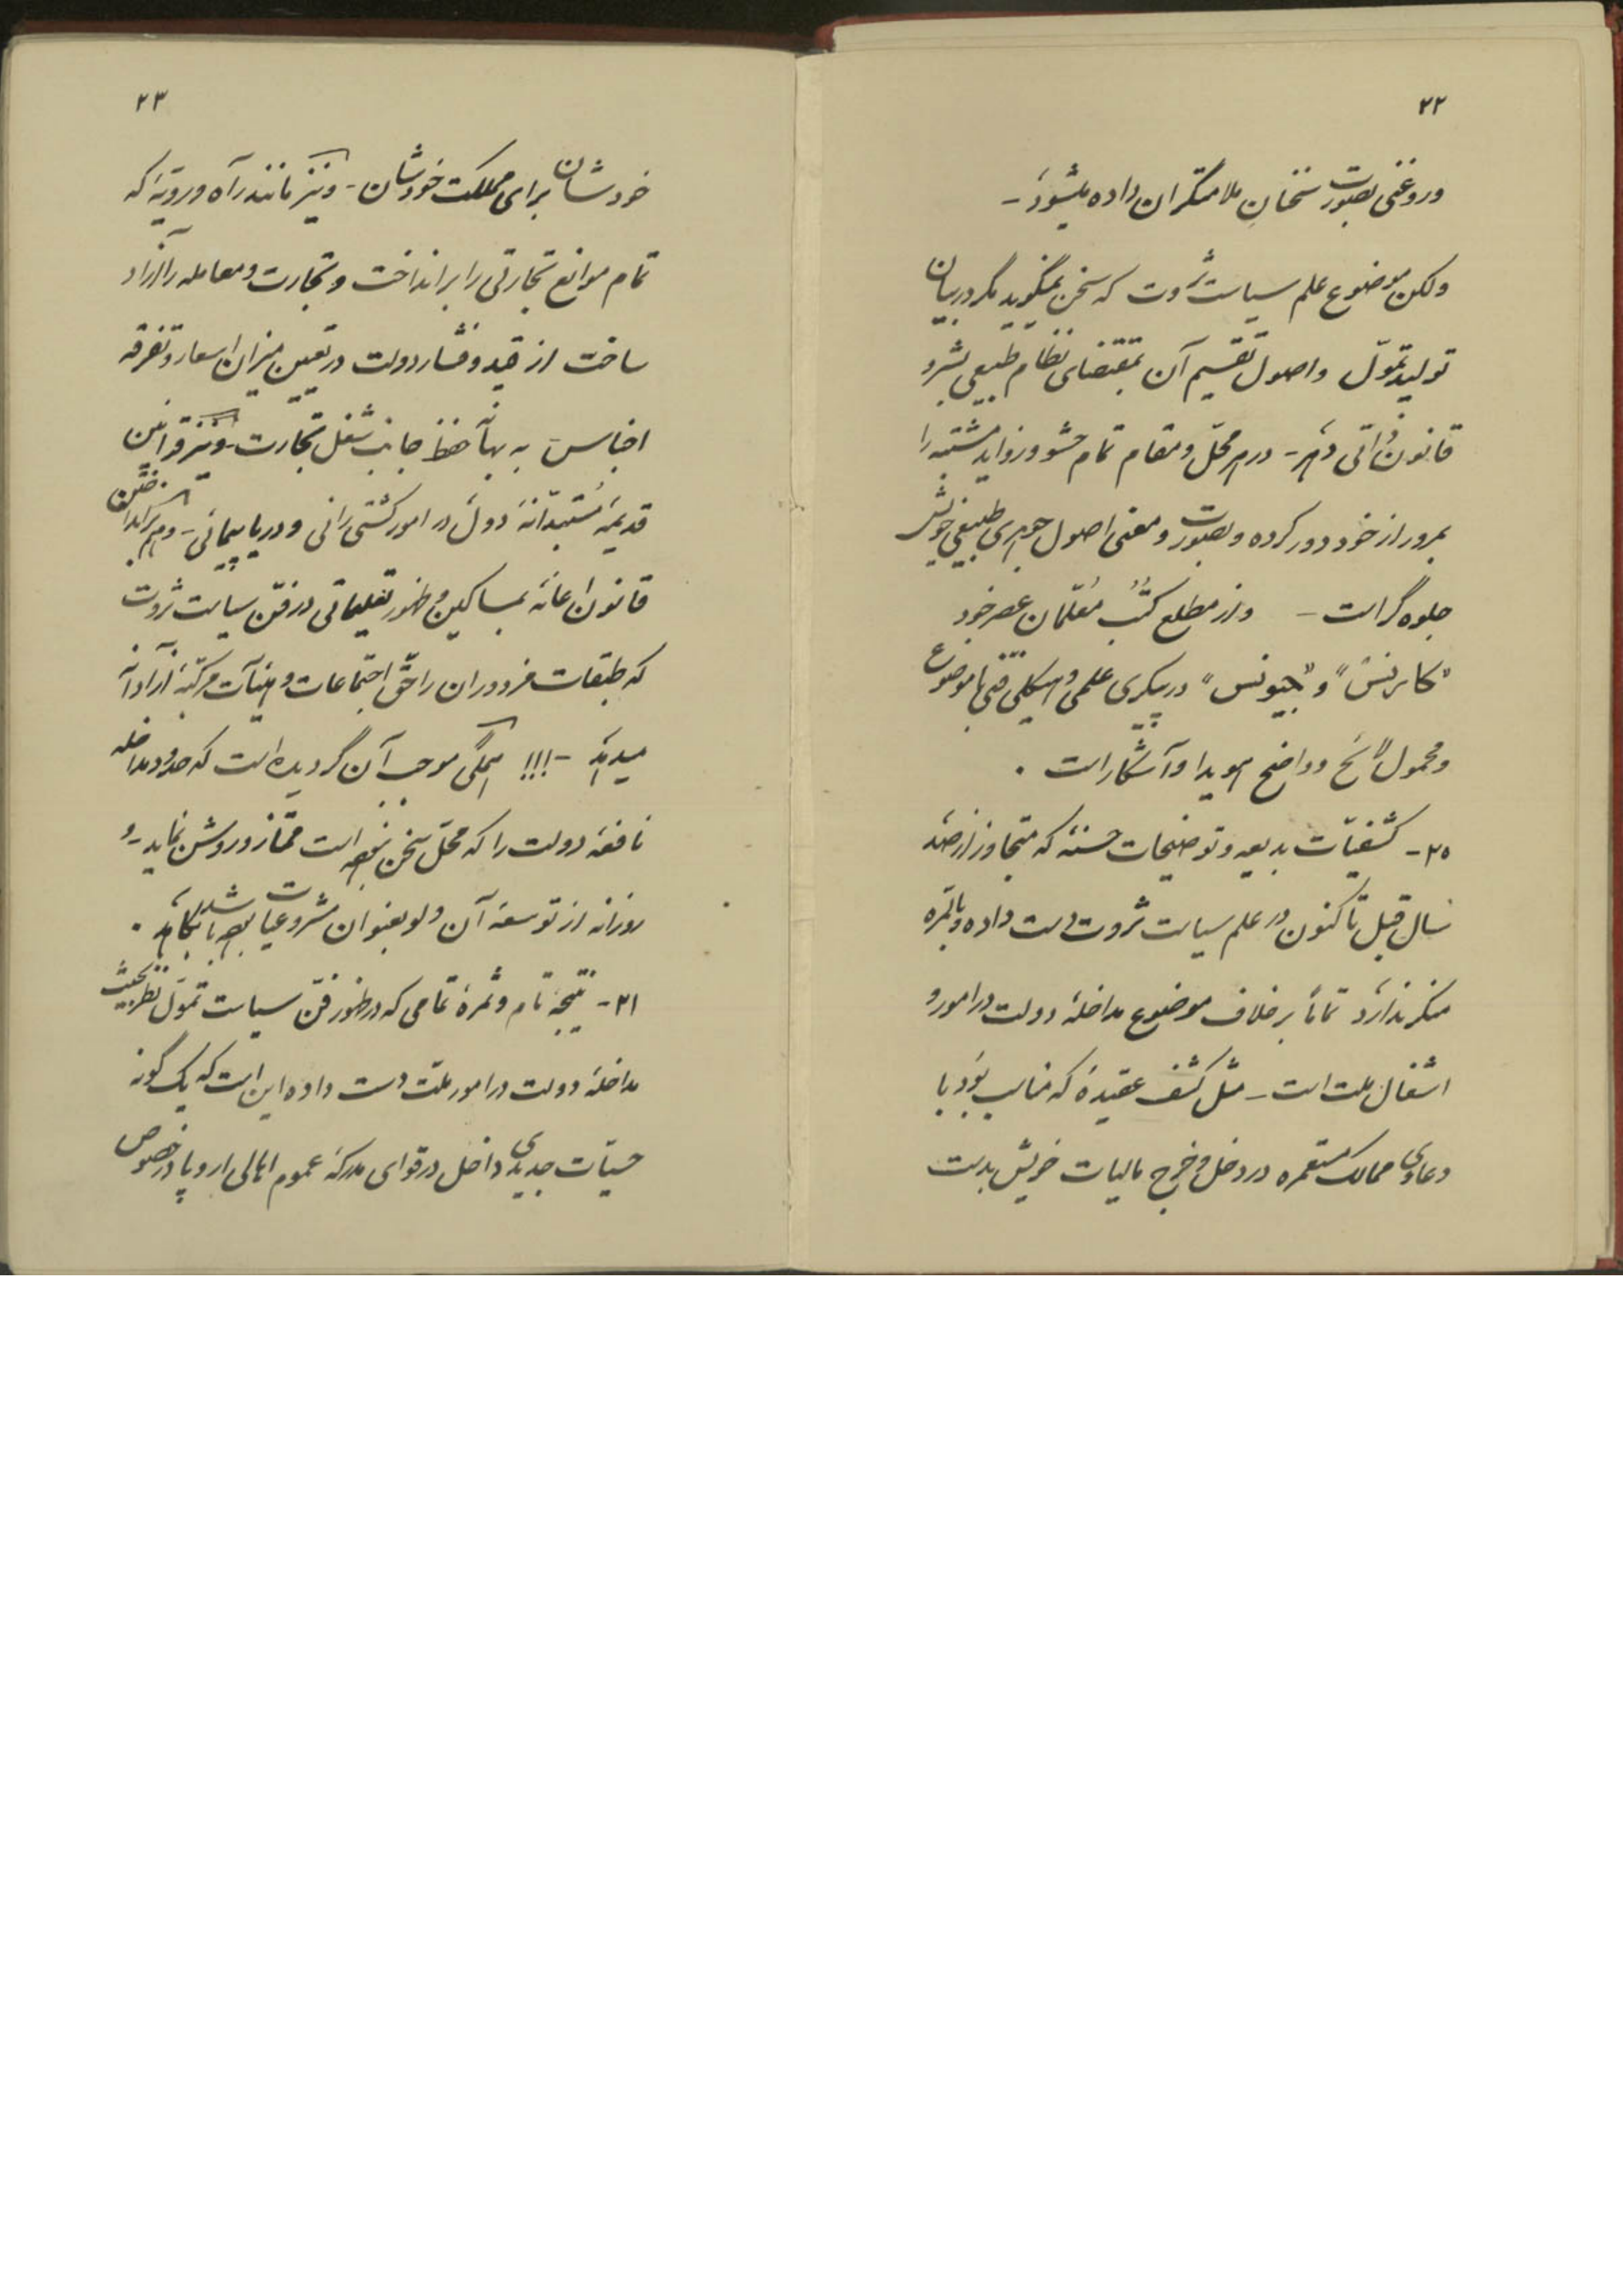 ۲۲
و روغنی بصورت سخنان ملامتگران داده میشود -
ولکن موضوع علم سیاست ثروت که سخن نمیگوید مگر در بیان
تولید تموّل و اصول تقسیم آن بمقتضای نظام طبیعی بشر و
قانون ذاتی دهر - در هر محلّ و مقام تمام حشو و زواید مشتبه را
بمرور از خود دور کرده و بصورت و معنی اصول جوهری طبیعی خویش
جلوه گر است - و از مطلع کتُب مُعلّمان عصر خود
"کایرنس" و "جیونس" در پیکری علمی و هیکلی فنی با موضوع
و محمول لائح و واضح هویدا و آشکار است .
۲۰- کشفیّات بدیعه و توضیحات حسنهٔ که متجاوز از صد
سال قبل تاکنون در علم سیاست ثروت دست داده و بالمره
منکر ندارد تماماً برخلاف موضوع مداخلهٔ دولت در امور و
اشغال ملت است - مثل کشف عقیدهٔ که مناسب بود با
دعاوی ممالک مستعمره در دخل و خرج مالیات خویش بدست
۲۳
خودشان برای مملکت خودشان - و نیز مانند راه و رویّهٔ که
تمام موانع تجارتی را برانداخت و تجارت و معامله را آزاد
ساخت از قید و فشار دولت در تعیین میزان اسعار و تفرقه
اجناس به بهانهٔ حفظ جانب شغل تجارت - و نیز قوانین
قدیمهٔ مُستبدّانهٔ دول در امور کشتی رانی و دریاپیمائی - و هم برانداختن
قانون اعانه بمساکین و ظهور تعلیماتی در فنّ سیاست ثروت
که طبقات مزدوران را حقّ اجتماعات و هیئآت مرکّبهٔ آزادانه
میدهد - !!! همگی موجب آن گردیده است که حدود مداخله
نافعهٔ دولت را که محلّ سخن بوده است ممتاز و روشن نماید - و
روزانه از توسعهٔ آن ولو بعنوان مشروعیّت باشد بکاهد .
۲۱- نتیجهٔ تام و ثمرهٔ تمامی که در ظهور فنّ سیاست تموّل نظر بحیث
مداخلهٔ دولت در امور ملّت دست داده این است که یک گونه
حسیّات جدیدی داخل در قوای مدرکهٔ عموم اهالی اروپا در خصوص